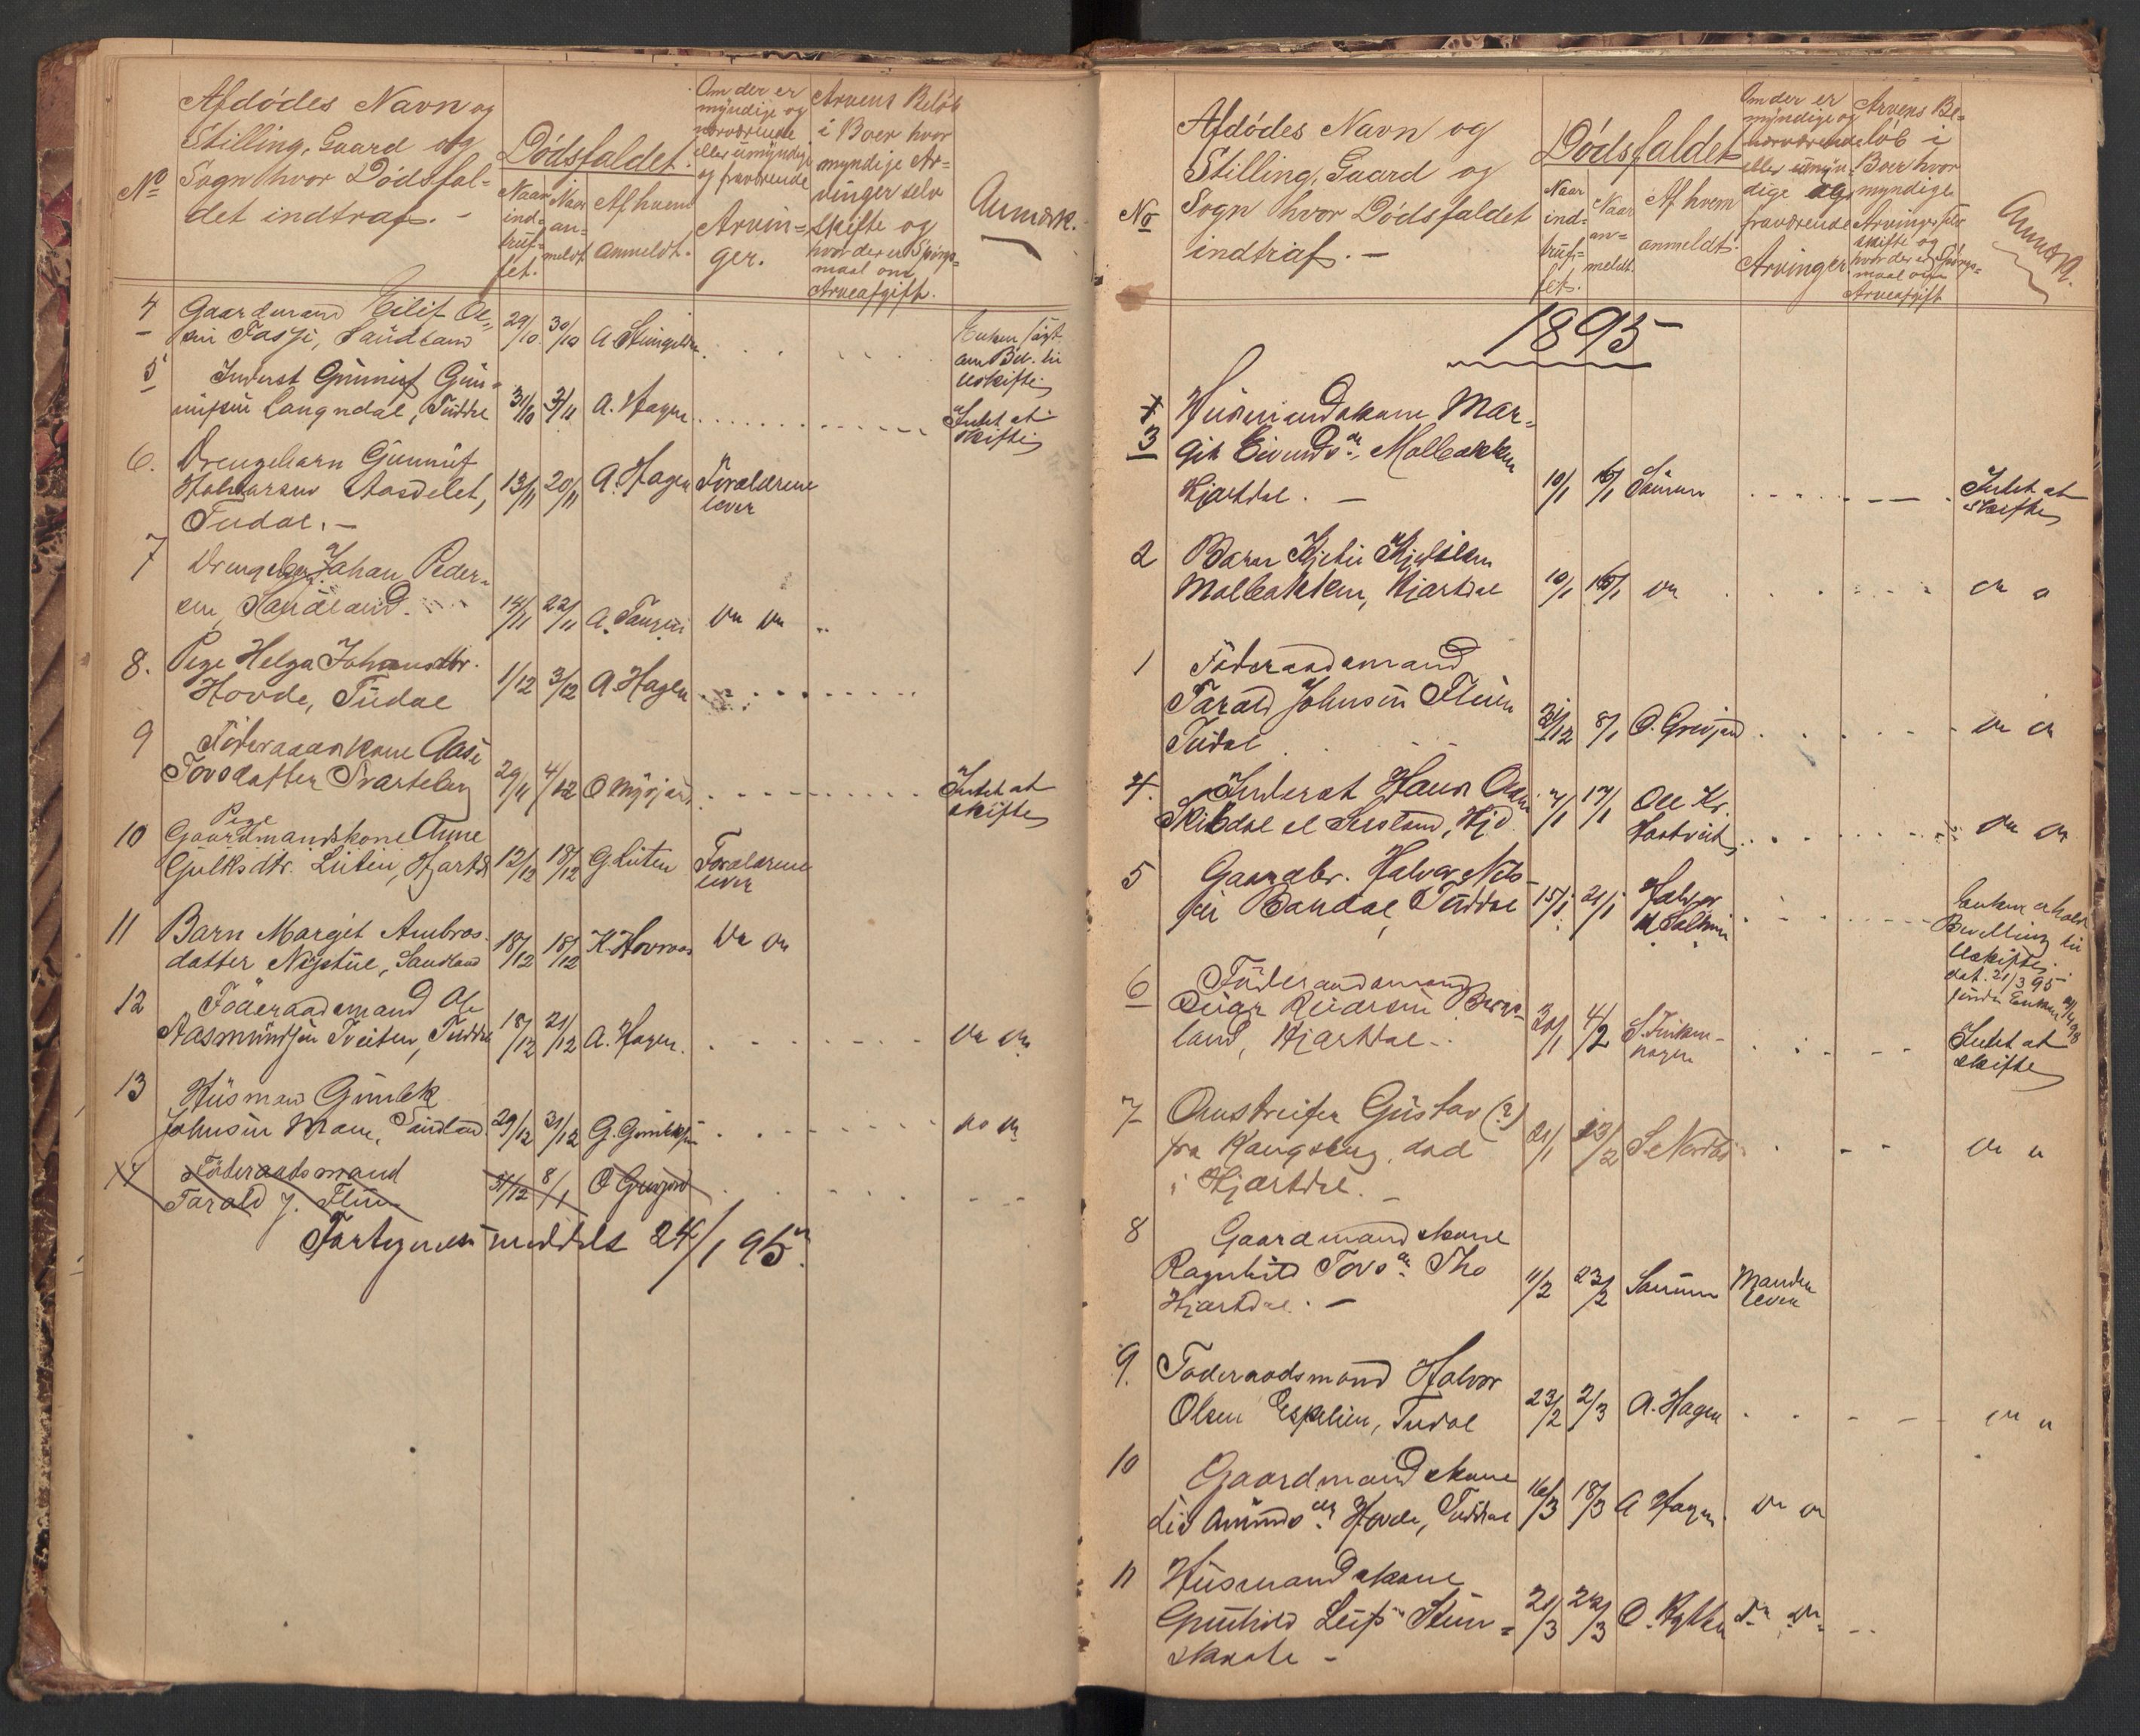 Afdödes Navn og
Stilling, Gaard og
Sogn hvor Dödsfal-
det indtraf. -
No
Dödsfaldet.
Naar
ind-
truf-
fet.
Naar
an-
meldt
Af hvem
anmeldt.
Om der er
myndige og
nærværende
eller umyndige
og fraværende
Arvin-
ger.
Arvens Belöb
i Boer hvor
myndige Ar-
vinger selv
skifte og
hvor der er Spörgs-
maal om
Arveafgift.
Anmærk.
4 Gaardmand Eilif
Sauland 29/10 30/10 A
Enken
5 Inderst Gunnuf Gun-
nufsen Langndal, Tuddal 31/10 3/11 A. Hagen
Intet at
skifte
6. Drengebarn Gunnuf
Halvorsen 13/11 20/11 A. Hagen Forældrene
lever
Tudal. -
7 Johan Peder-
sen, Sauland. 14/11 22/11 A. Do Do
8. Pige Helga Johansdtr.
Hovde, Tudal 1/12 3/12 A. Hagen
9 Föderaadskone Aase
Tovsdatter Svarteberg 29/11 4/12 O
Intet at
skifte
Pige
10 Gaardmandskone Anne
Gjulksdtr. Liten, Hjartd. 12/12 18/12 G. Liten Forældrene
lever
11 Barn Margit Ambros-
datter Nystul, Sauland 18/12 18/12 K. Do Do
12 Föderaadsmand Ole
Aasmundsen Tveiten, Tuddal 18/12 21/12 A. Hagen. Do Do
13 Husmand Gunlek
Johnsen Moen, Sauland 29/12 31/12 G. Gunleksen Do Do
14 Föderaadsmand
Tarald J. Flun 31/12 8/1 O Grevjord
Fortegnelse meddelt 24/1 95.
Afdödes Navn og
Stilling, Gaard og
Sogn hvor Dödsfaldet
indtraf. -
No
Dödsfaldet
Naar
ind-
truf-
fet.
Naar
an-
meldt.
Af hvem
anmeldt.
Om der er
myndige og
nærværende
eller umyn-
dige og
fraværende
Arvinger
Arvens Be-
löb i
Boer hvor
myndige
Arvinger selv
skifte og
hvor der er Spörgs-
maal om
Arveafgift
Anmærk.
1895
3 Husmandskone Mar-
git Eivindsdr. Molbakken
Hjartdal. - 10/1 16/1 Intet at
skifte
2 Barn Kjetil Kjetilsen
Molbakken, Hjartdal 10/1 16/1 Do Do
1 Föderaadsmand
Tarald Johnsen Flun
Tudal 31/12 8/1 O. Grevjord Do Do
4. Inderst Hans
Skibdal Hjd. 7/1 17/1 Ole Kr.
Hartveit Do Do
5 Gaardbr. Halvor Nils-
sen Bondal, Tuddal 15/1 21/1 Halvor
Enken erholdt
Bevilling til
Uskifte
dat. 21/3 95
6 Föderaadsmand
land, Hjartdal. 4/2 S.
Intet at
skifte
7 Omstreifer Gustav (?)
fra Kongsberg, död
i Hjartdal. - 21/1 13/2 S. Do
8 Gaardmandskone
Ragnhild Tovsdr. Tho
Hjartdal. - 11/2 23/2 Manden
lever
9. Föderaadsmand Halvor
Olsen Espelien, Tudal 23/2 2/3 A. Hagen Do
10 Gaardmandskone
Liv Amundsdr. Hovde, Tuddal 16/3 18/3 A Hagen. Do Do
11 Husmandskone
Gunhild 21/3 22/3 O. Do Do